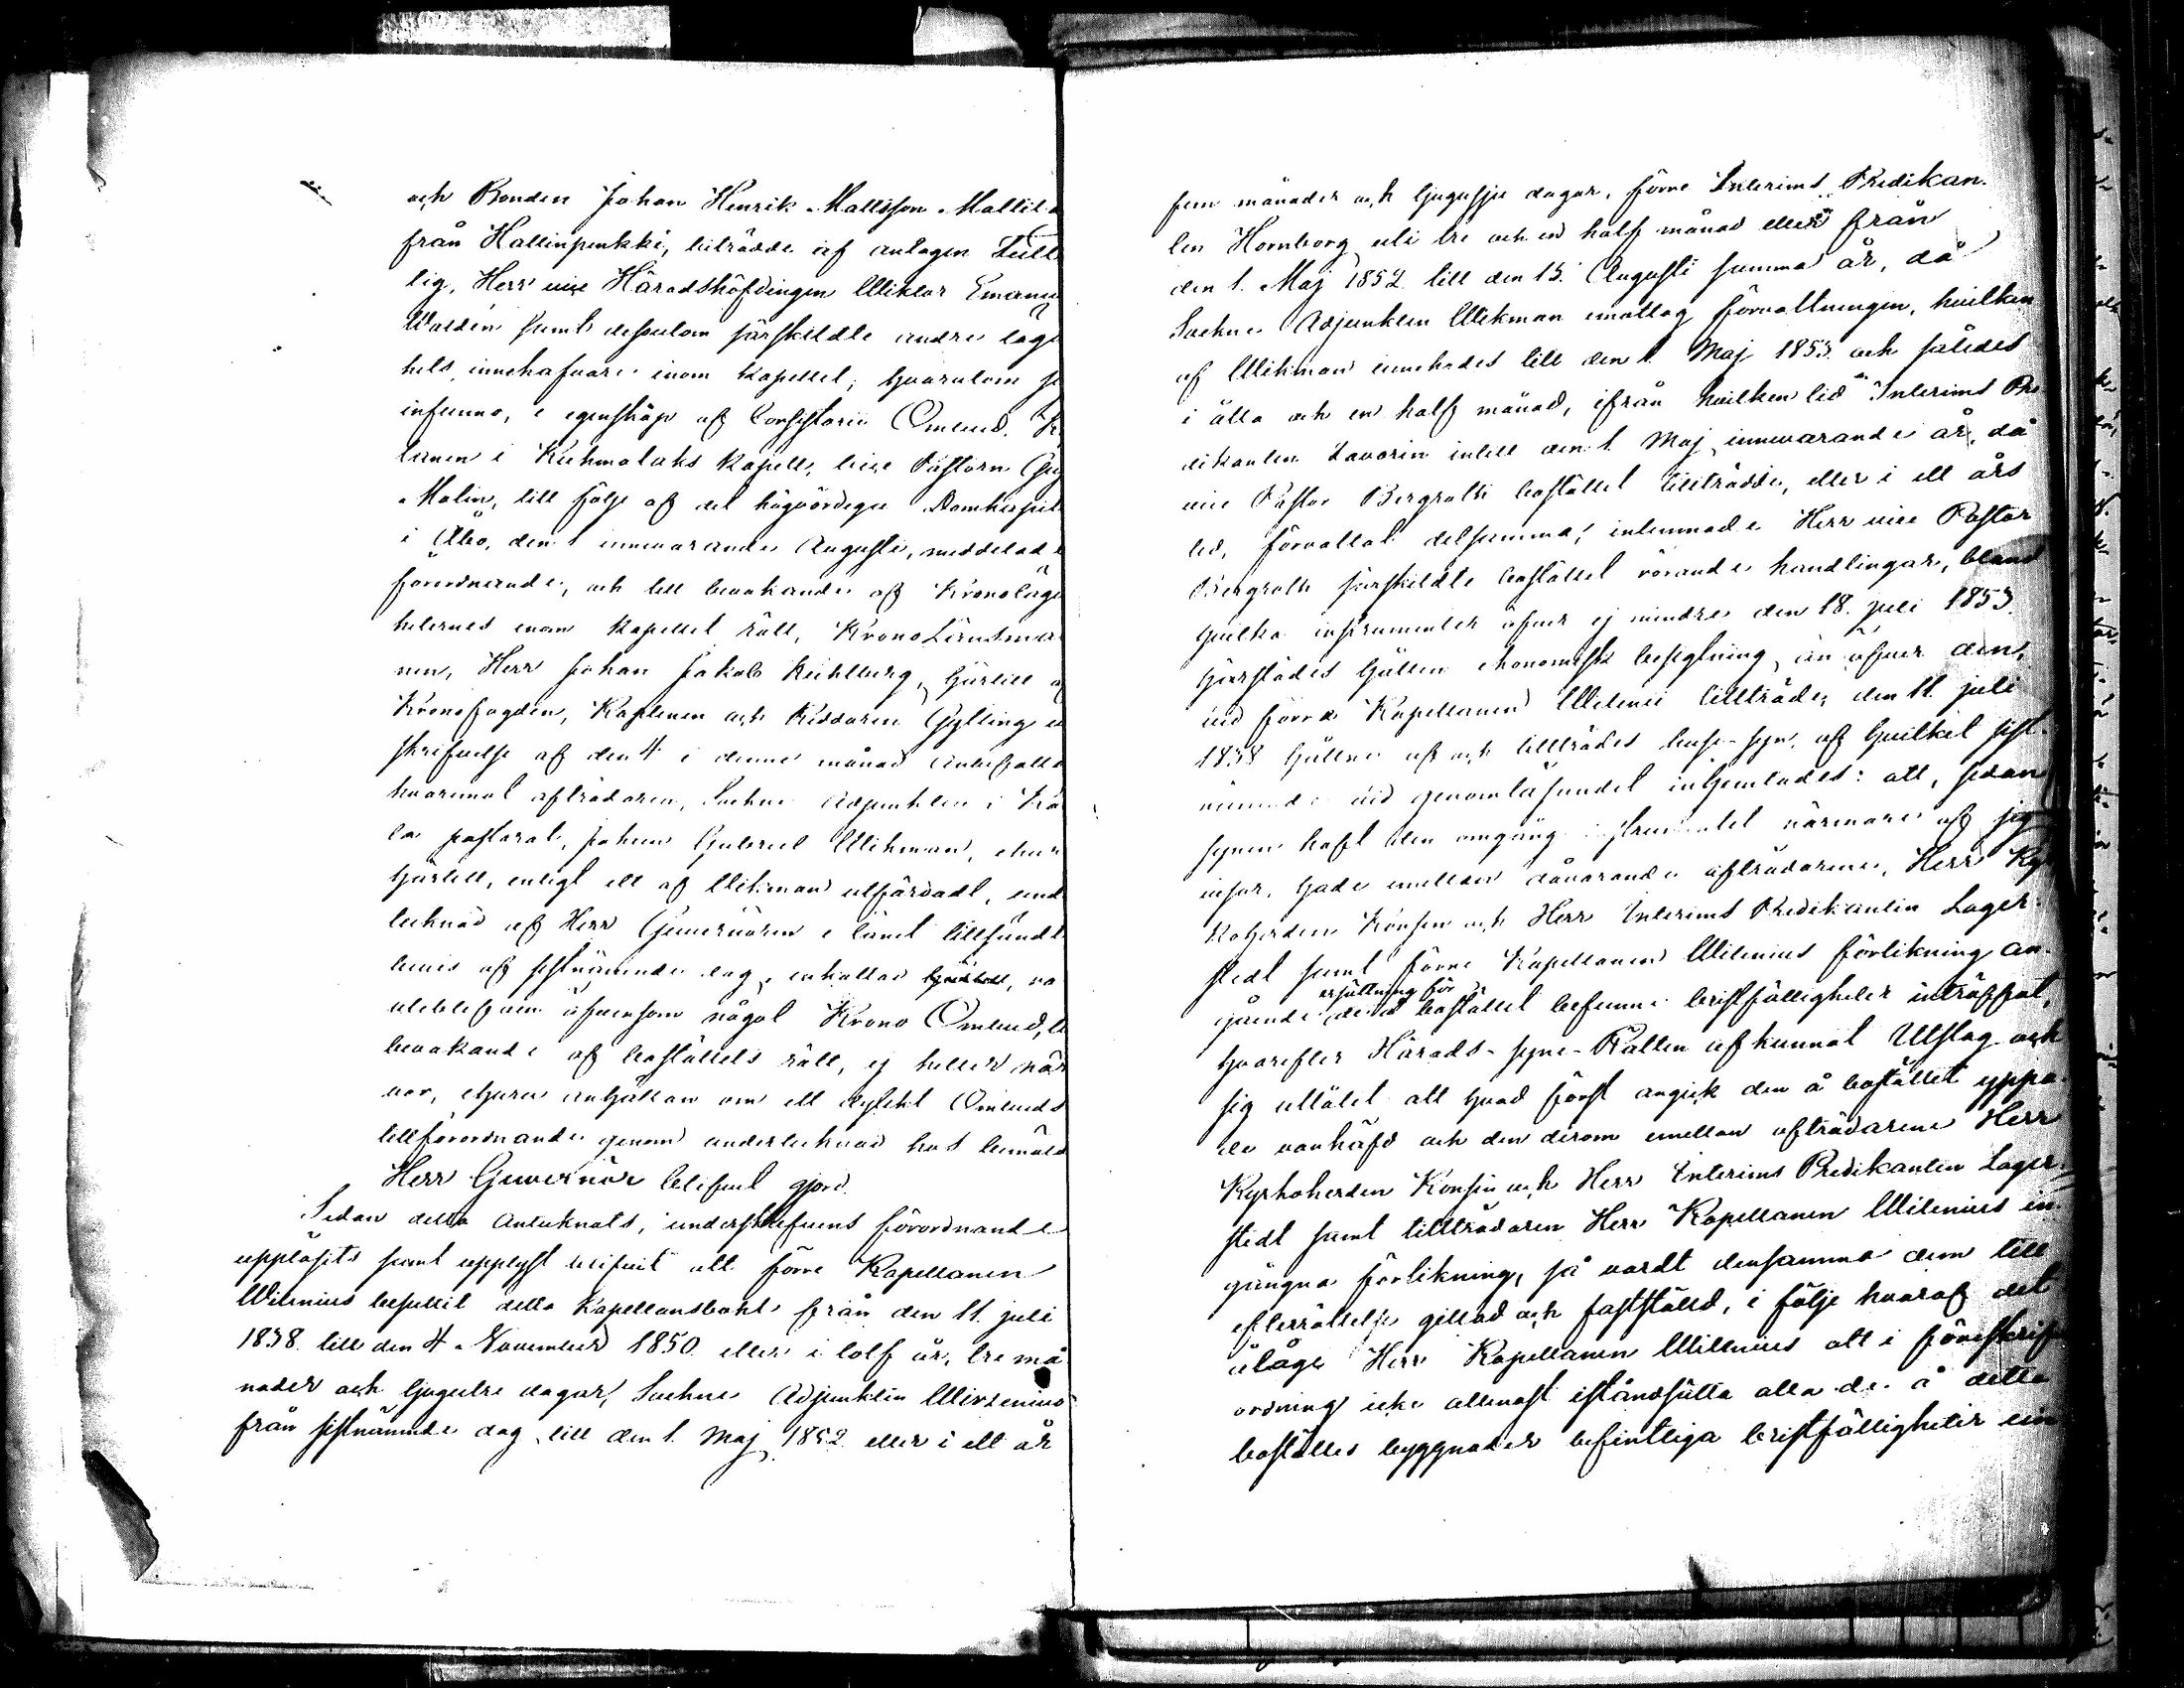 och Bonden Johan Henrik Mattsson Mattila
från Hallinpenkki, biträdde af antagen Full
tig, Herr vice Häradshöfdingen Wiktor Emanu
Waldén samt dessutom särskildte andre läge
hets innehafvare inom kapellet; hvarutom 
infunno, i egenskap af Consistorii Ombud, K
lanen i Kuhmalaks Kapell, vice Pastorn Gu
Malin, till följe af det högvördiga Domkapit
i Åbo, den 1 innevarande Augusti, meddelade
förordnande, och till bevakande af Kronoläge
heternes inom kapellet rätt, KronoLänsma
nen, Herr Johan Jakob Kuhlberg, härtill
Kronofogden, Kaptenen och Riddaren Gylling
skrifvelse af den 4 i denne månad anbefalld
hvaremot afträdaren, Sockne Adjunkten i
la pastorat, Johan Gabriel Wikman, ehur
härtill, enligt ett af Wikman utfärdadt, und
tecknad af Herr Guvernören i länet tillsändt
bevis af sistnämnde dag, inkallad, va
uteblefven äfvensom något Krono Ombud,
bevakande af boställets rätt, ej heller när
var, ehuru anhållan om ett dylikt Ombuds
tillförordnande genom undertecknad hos bemäld
Herr Guvernör blifvit gjord.
Sedan detta antecknats, underskrefvens förordnande
uppläsits samt upplyst blifvit att förre Kapellanen
Wilenius besuttit detta Kapellansbohl från den 11. juli
1838. till den 4 November 1850. eller i tolf år, tre må
nader och tjugutre dagar, Sockne Adjunkten Wirzenius
från sistnämnde dag till den 1. Maj 1852 eller i ett år
fem månader och tjugusju dagar, förre Interims Predikan-
ten Hornborg uti tre och en half månad eller från
den 1. Maj 1852 till den 15. Augusti samma år, då
Sockne Adjunkten Wikman emottog förvaltningen, hvilken
af Wikman innehades till den 1. Maj 1853 och således
i åtta och en half månad, ifrån hvilken tid Interims Pre
dikanten Lavonin intill den 1 Maj innevarande år, då
vice Pastor Bergroth bostället tillträdde, eller i ett års
tid, förvaltat detsamma; inlemnade Herr vice Pastor
Bergroth särskildte bostället rörande handlingar, bland
hvilka instrumenter öfver ej mindre den 18. juli 1853.
härstädes hållen ekonomisk besigtning, än öfver den,
vid förre Kapellanen Wilenii tillträde, den 11. juli
1838 hållne af och tillträdes huse-syn, af hvilket sist-
nämnde vid genomläsandet inhemtades: att, sedan
synen haft den omgång instrumentet närmare af sig
visar, hade emellan dåvarande afträdarene, Herr Kyr
koherden Konsin och Herr Interims Predikanten Lager-
stedt samt förre Kapellanen Wilenius förlikning an-
ersättning för
gående å bostället befunne bristfälligheter inträffat,
hvarefter Härads-syne-Rätten afkunnat Utslag och
sig utlåtit att hvad först angick den å bostället yppa-
de vanhäfd och den derom emellan afträdarene Herr
Kyrkoherden Konsin och Herr Interims Predikanten Lager-
stedt samt tillträdaren Herr Kapellanen Wilenius in-
gångna förlikning, så vardt densamma dem till
efterrättelse gillad och fastställd, i följe hvaraf det
ålåge Herr Kapellanen Willenius att i föreskrif
ordning icke allenast iståndsätta alla de å detta
boställes byggnader befintliga bristfälligheter